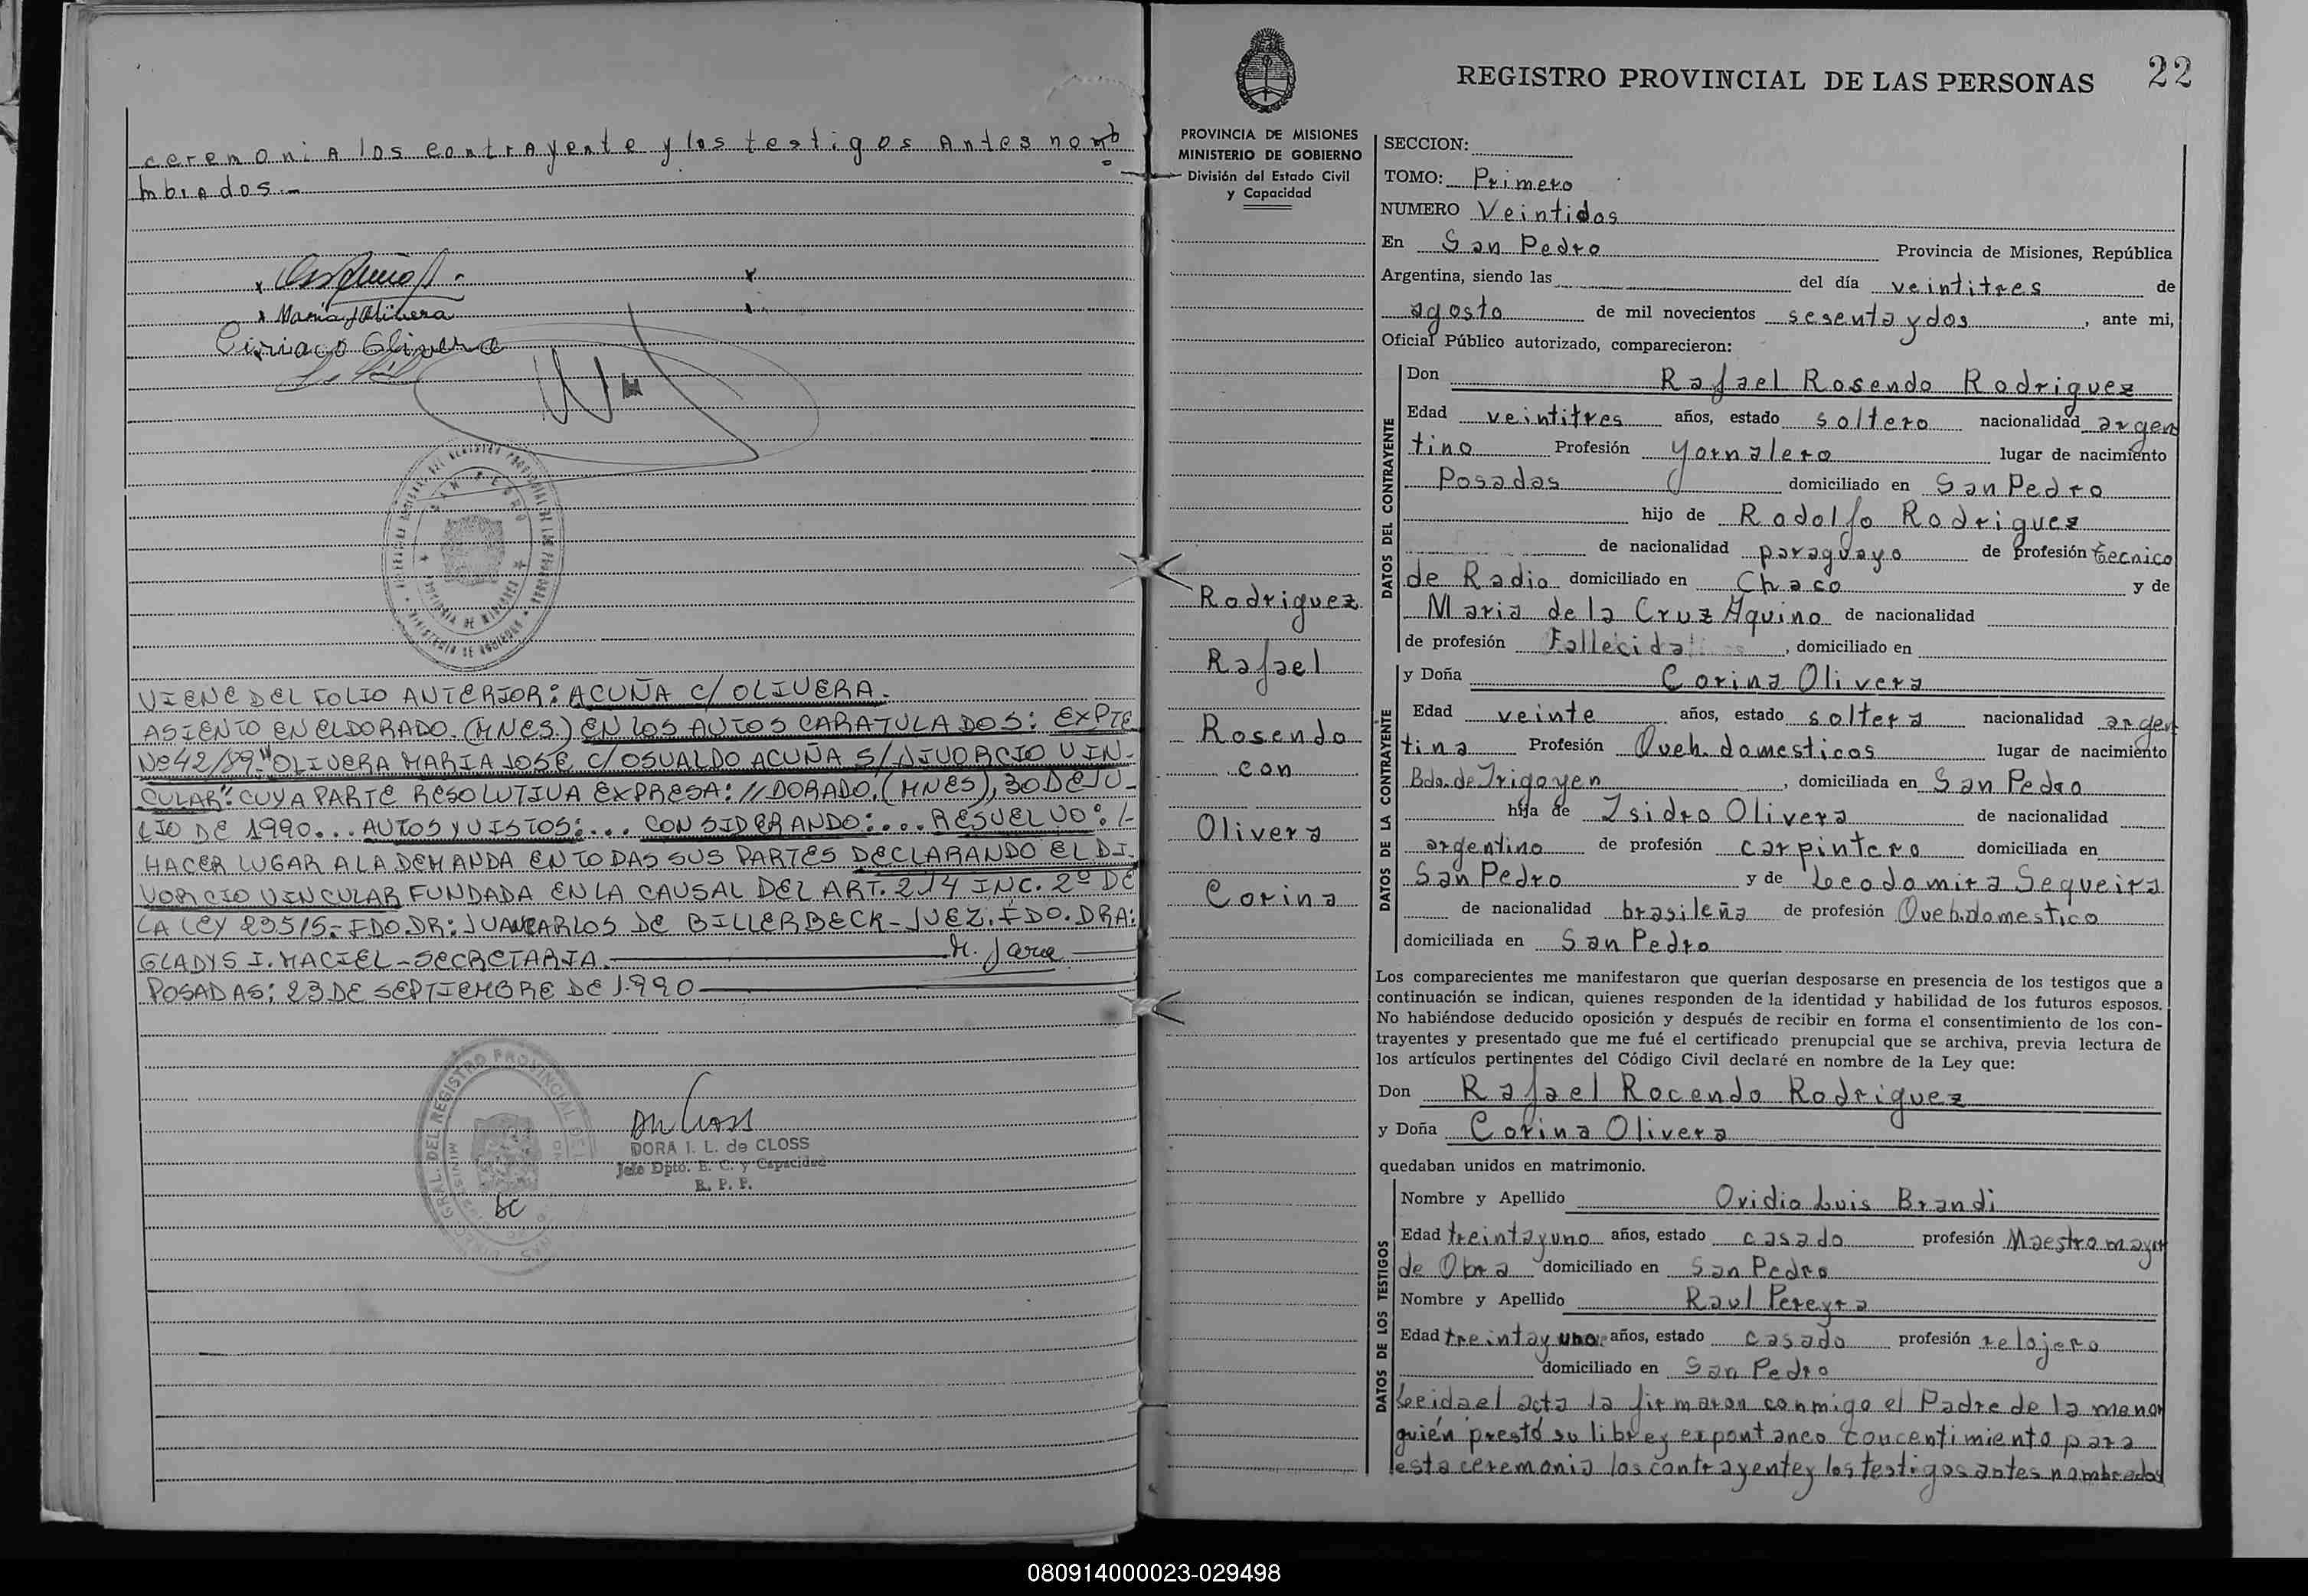 ceremonia los contrayente y los testigos antes nomb
mbrados.-
Maria J Olivera
Ciriaco Olivera
SAN PEDRO
VIENE DEL FOLIO ANTERIOR: ACUÑA C/ OLIVERA.
ASIENTO EN ELDORADO. (MNES.) EN LOS AUTOS CARATULADOS: EXPTE
Nº 42/89 "OLIVERA MARIA JOSE C/ OSVALDO ACUÑA S/ DIVORCIO VIN-
CULAR": CUYA PARTE RESOLUTIVA EXPRESA: // DORADO, (MNES), 30 DE JU-
LIO DE 1990... AUTOS Y VISTOS:... CONSIDERANDO:... RESUELVO: I-
HACER LUGAR A LA DEMANDA EN TODAS SUS PARTES DECLARANDO EL DI-
VORCIO VINCULAR FUNDADA EN LA CAUSAL DEL ART. 214 INC. 2º DE
LA LEY 23515.- FDO. DR: JUAN CARLOS DE BILLERBECK - JUEZ. FDO. DRA:
GLADYS I. MACIEL - SECRETARIA.
POSADAS: 23 DE SEPTIEMBRE DE 1.990
DORA I. L. de CLOSS
Jefe Dpto. E. C. y Capacidad
R. P. P.
22
REGISTRO PROVINCIAL DE LAS PERSONAS
PROVINCIA DE MISIONES
MINISTERIO DE GOBIERNO
División del Estado Civil
y Capacidad
Rodriguez
Rafael
Rosendo
con
Olivera
Corina
SECCION:
TOMO: Primero
NUMERO Veintidos
En San Pedro Provincia de Misiones, República
Argentina, siendo las del día veintitres de
agosto de mil novecientos sesenta y dos, ante mi,
Oficial Público autorizado, comparecieron:
DATOS DEL CONTRAYENTE
Don Rafael Rosendo Rodriguez
Edad veintitres años, estado soltero nacionalidad argen
tino Profesión Yornalero lugar de nacimiento
Posadas domiciliado en San Pedro
hijo de Rodolfo Rodriguez
de nacionalidad paraguayo de profesión tecnico
de Radio domiciliado en Chaco y de
Maria de la Cruz Aquino de nacionalidad
de profesión Fallecida, domiciliado en
DATOS DE LA CONTRAYENTE
y Doña Corina Olivera
Edad veinte años, estado soltera nacionalidad argen
tina Profesión Queh. domesticos lugar de nacimiento
Bdo. de Irigoyen, domiciliada en San Pedro
hija de Isidro Olivera de nacionalidad
argentino de profesión carpintero domiciliada en
San Pedro y de Leodomira Sequeira
de nacionalidad brasileña de profesión Queh. domestico
domiciliada en San Pedro
Los comparecientes me manifestaron que querían desposarse en presencia de los testigos que a
continuación se indican, quienes responden de la identidad y habilidad de los futuros esposos.
No habiéndose deducido oposición y después de recibir en forma el consentimiento de los con-
trayentes y presentado que me fué el certificado prenupcial que se archiva, previa lectura de
los artículos pertinentes del Código Civil declaré en nombre de la Ley que:
Don Rafael Rocendo Rodriguez
y Doña Corina Olivera
quedaban unidos en matrimonio.
DATOS DE LOS TESTIGOS
Nombre y Apellido Ovidio Luis Brandi
Edad treinta y uno años, estado casado profesión Maestro mayor
de Obra domiciliado en San Pedro
Nombre y Apellido Raul Pereyra
Edad treinta y uno años, estado casado profesión relojero
domiciliado en San Pedro
Leida el acta la firmaron conmigo el Padre de la menor
quién prestó su libre y expontaneo concentimiento para
esta ceremonia los contrayente y los testigos antes nombrados
080914000023-029498